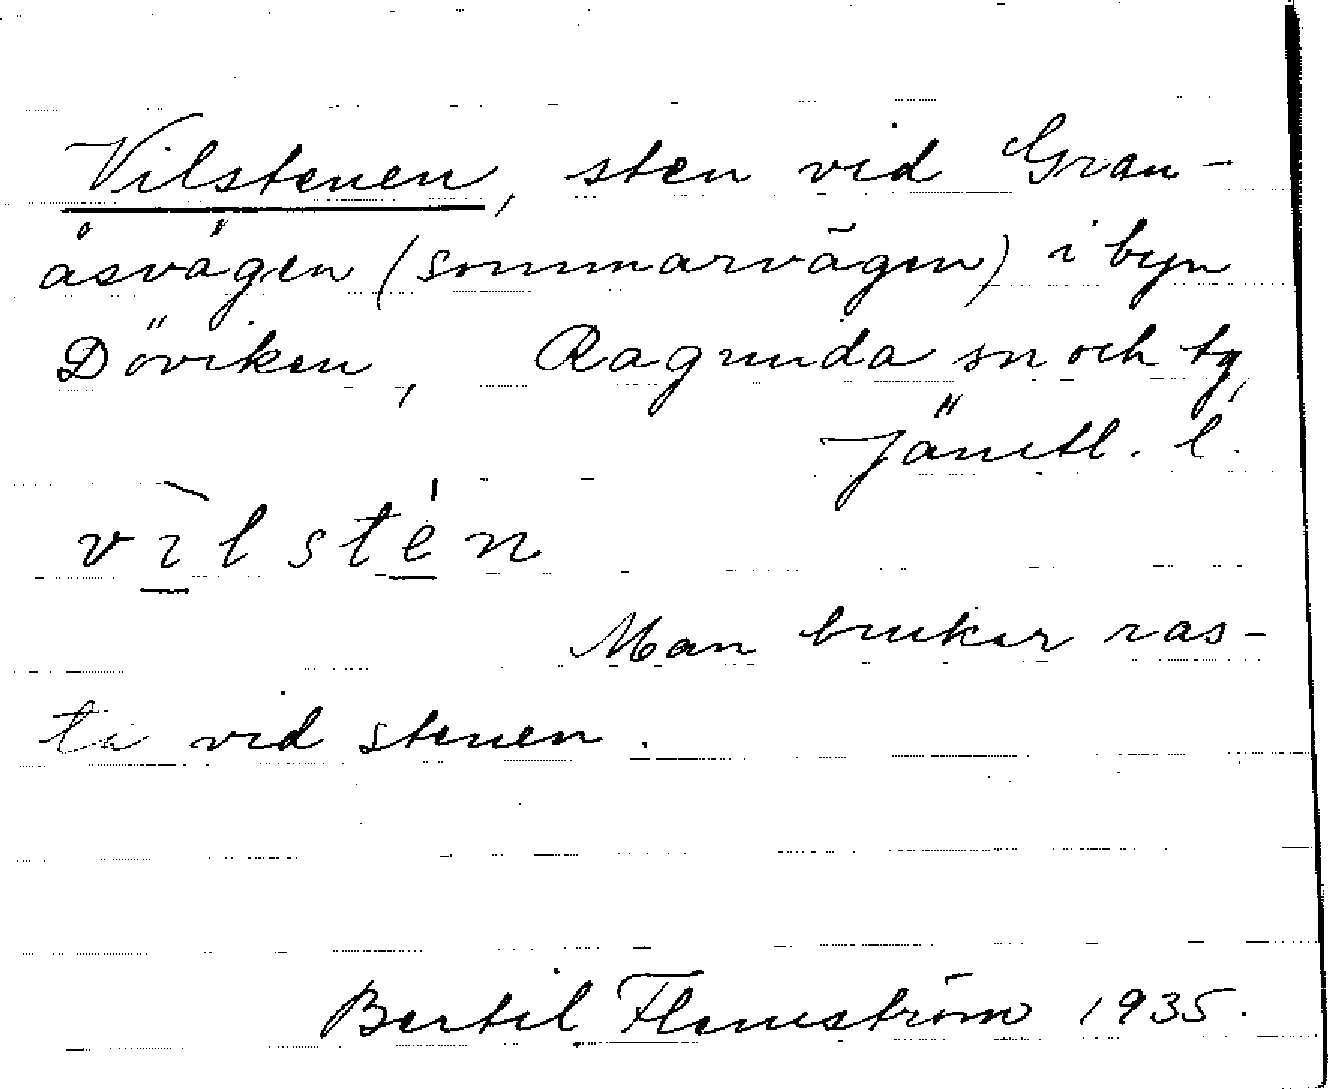 Vilstenen, sten vid Gran-
åsvägen (sommarvägen) i byn
Döviken, Ragunda sn och tg,
Jämtl. l.
vì̲lsté̲n
Man brukar ras-
ta vid stenen.
Bertil Flemström 1935.